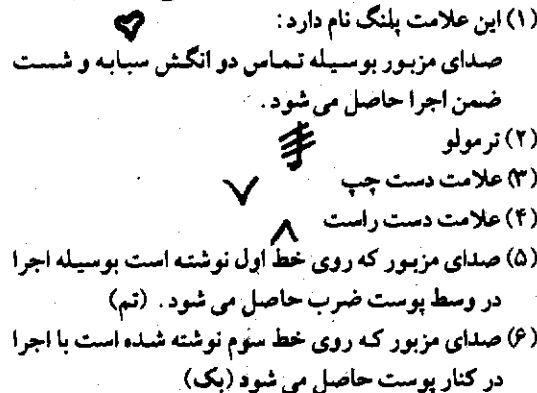 (۱) این علامت پلنگ نام دارد:
صدای مزبور بوسیله تماس دو انگش سبابه و شست
ضمن اجرا حاصل می شود.
(۲) ترمولو
(۳) علامت دست چپ
(۴) علامت دست راست
(۵) صدای مزبور که روی خط اول نوشته است بوسیله اجرا
در وسط پوست ضرب حاصل می شود. (تم)
(۶) صدای مزبور که روی خط سوم نوشته شده است با اجرا
در کنار پوست حاصل می شود (بک)